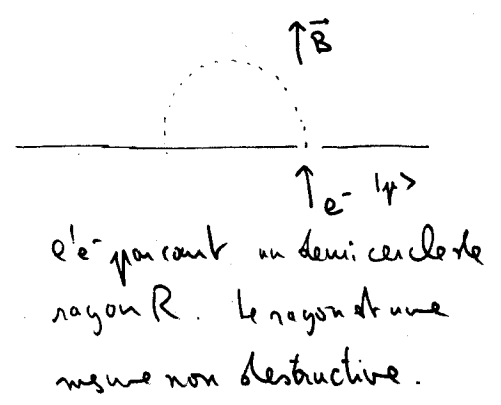 B⃗
e⁻ |ψ>
l'e⁻ parcourt un demi cercle de
rayon R. Le rayon est une
mesure non destructive.